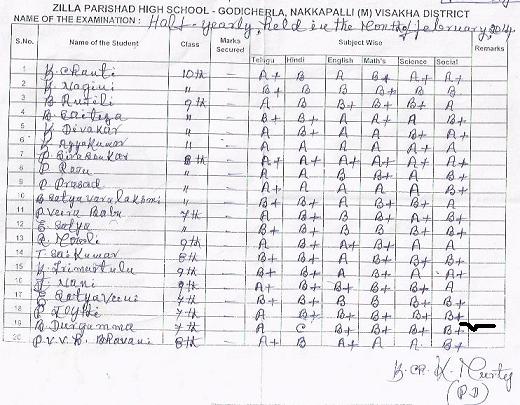 ZILLA PARISHAD HIGH SCHOOL - GODICHERLA, NAKKAPALLI (M) VISAKHA DISTRICT
NAME OF THE EXAMINATION : Half-yearly, held in the Month of february, 2014
S.No. Name of the Student Class Marks Secured Subject Wise Remarks
Telugu Hindi English Math's Science Social
1 K. Chanti 10th — A+ B A B+ A+ A+
2 K. Nagini " — B+ B B B+ B B
3 B. 9th — A B B+ B+ A B+
4 B. " — B+ B+ A A+ A B+
5 K. Devakar " — A B+ A A B+ A+
6 K. Ayyakumar " — A A A A A A+
7 P. Sivasankar 8th — A+ A+ A+ A+ A+ A+
8 P. Ravu " — A A B+ A A B+
9 P. Prasad " — A+ A A A A B+
10 B. Satyavaralakshmi " — B+ B+ A A B+ B+
11 P. Veera Babu 7th — A B+ A B+ A B+
12 E. Satya " — B+ B+ A A B+ B+
13 R. Mouli 9th — A B+ A+ B+ A A
14 T. Sai Kumar 8th — B+ B+ A A B+ B+
15 K. Trimurtulu 9th — B+ B+ A B+ A A+
16 J. Nani 9th — A+ B+ B+ B+ B+ A
17 E. Satyaveni 7th — B+ B+ B B B+ B+
18 P. Jyothi 7th — A B+ B+ B+ B+ B+
19 B. Durgamma 7th — A C B+ B+ B+ B+
20 P.V.V.B. Bhavani 8th — A+ B A+ A A B+
K. Murty
(P.D)